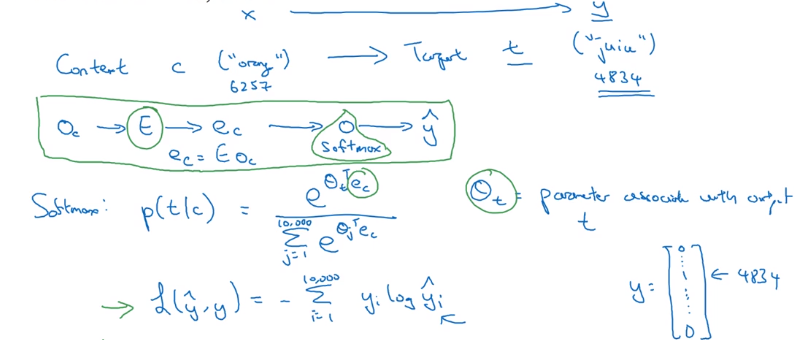 x → y
Content c ("orang") → Target t ("juice")
6257 4834
O_c → E → e_c → O → ŷ
e_c = E O_c softmax
Softmax: p(t|c) = e^{θ_t^T e_c} / ∑_{j=1}^{10,000} e^{θ_j^T e_c} θ_t = parameter associate with output t
→ L(ŷ, y) = - ∑_{i=1}^{10,000} y_i log ŷ_i ← y = [0 ⋮ 1 ⋮ 0] ← 4834